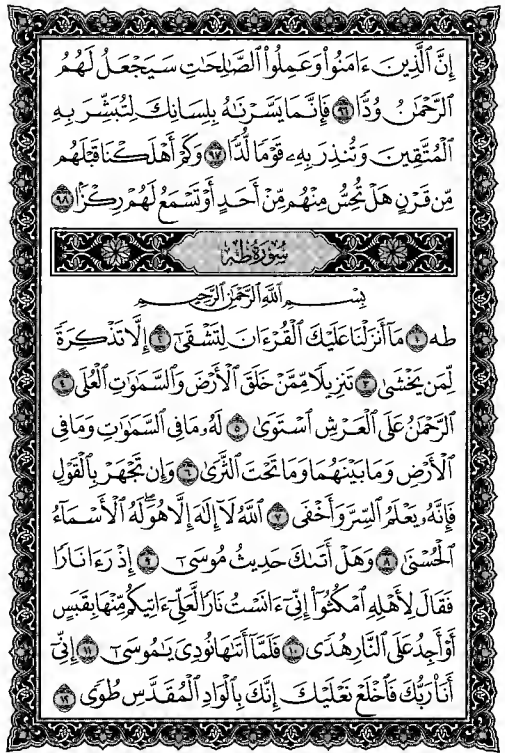 إِنَّ ٱلَّذِينَ ءَامَنُوا۟ وَعَمِلُوا۟ ٱلصَّٰلِحَٰتِ سَيَجْعَلُ لَهُمُ
ٱلرَّحْمَٰنُ وُدًّا ٩٦ فَإِنَّمَا يَسَّرْنَٰهُ بِلِسَانِكَ لِتُبَشِّرَ بِهِ
ٱلْمُتَّقِينَ وَتُنذِرَ بِهِۦ قَوْمًا لُّدًّا ٩٧ وَكَمْ أَهْلَكْنَا قَبْلَهُم
مِّن قَرْنٍ هَلْ تُحِسُّ مِنْهُم مِّنْ أَحَدٍ أَوْ تَسْمَعُ لَهُمْ رِكْزًۢا ٩٨
سُورَةُ طه
بِسْمِ ٱللَّهِ ٱلرَّحْمَٰنِ ٱلرَّحِيمِ
طه ١ مَآ أَنزَلْنَا عَلَيْكَ ٱلْقُرْءَانَ لِتَشْقَىٰٓ ٢ إِلَّا تَذْكِرَةً
لِّمَن يَخْشَىٰ ٣ تَنزِيلًا مِّمَّنْ خَلَقَ ٱلْأَرْضَ وَٱلسَّمَٰوَٰتِ ٱلْعُلَى ٤
ٱلرَّحْمَٰنُ عَلَى ٱلْعَرْشِ ٱسْتَوَىٰ ٥ لَهُۥ مَا فِى ٱلسَّمَٰوَٰتِ وَمَا فِى
ٱلْأَرْضِ وَمَا بَيْنَهُمَا وَمَا تَحْتَ ٱلثَّرَىٰ ٦ وَإِن تَجْهَرْ بِٱلْقَوْلِ
فَإِنَّهُۥ يَعْلَمُ ٱلسِّرَّ وَأَخْفَى ٧ ٱللَّهُ لَآ إِلَٰهَ إِلَّا هُوَ ۖ لَهُ ٱلْأَسْمَآءُ
ٱلْحُسْنَىٰ ٨ وَهَلْ أَتَىٰكَ حَدِيثُ مُوسَىٰٓ ٩ إِذْ رَءَا نَارًا
فَقَالَ لِأَهْلِهِ ٱمْكُثُوٓا۟ إِنِّىٓ ءَانَسْتُ نَارًا لَّعَلِّىٓ ءَاتِيكُم مِّنْهَا بِقَبَسٍ
أَوْ أَجِدُ عَلَى ٱلنَّارِ هُدًى ١٠ فَلَمَّآ أَتَىٰهَا نُودِىَ يَٰمُوسَىٰٓ ١١ إِنِّىٓ
أَنَا۠ رَبُّكَ فَٱخْلَعْ نَعْلَيْكَ ۖ إِنَّكَ بِٱلْوَادِ ٱلْمُقَدَّسِ طُوًى ١٢